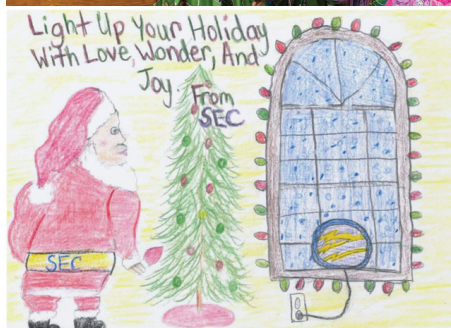 Light Up Your Holiday
With Love, Wonder, And
Joy From
SEC
SEC